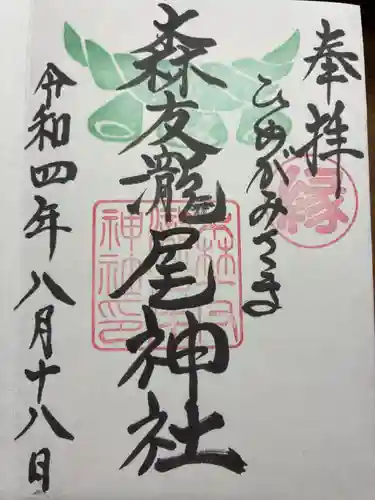 奉拝
縁
ひめがみさま
森友龍尾神社
令和四年八月十八日